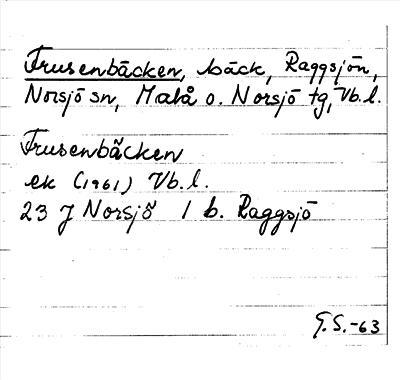 Frusenbäcken, bäck, Raggsjön,
Norsjö sn, Malå o. Norsjö tg, Vb.l.
Frusenbäcken
ek (1961) Vb.l.
23 J Norsjö 1 b. Raggsjö
G.S.-63